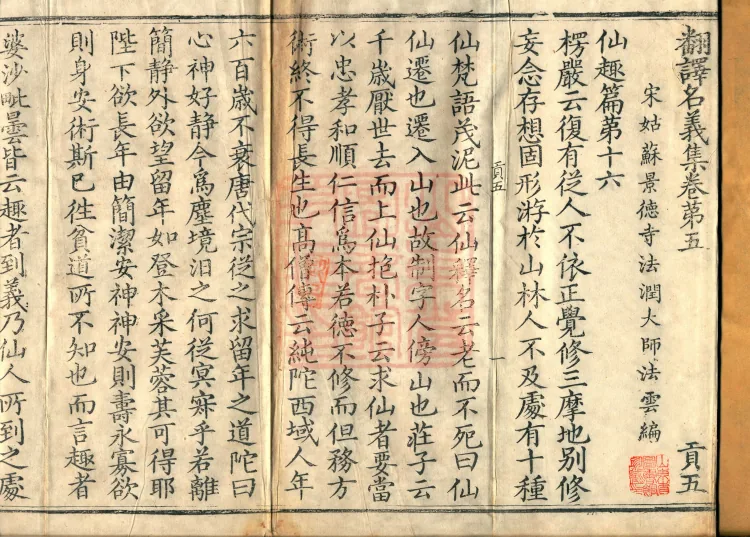 翻譯名義集卷第五 貢五
宋姑蘇景德寺法潤大師法雲編
仙趣篇第十六
楞嚴云復有從人不依正覺修三摩地別修
妄念存想固形游於山林人不及處有十種
貢五 一
仙梵語茂泥此云仙釋名云老而不死曰仙
仙遷也遷入山也故制字人傍山也莊子云
千歲厭世去而上仙抱朴子云求仙者要當
以忠孝和順仁信爲本若德不修而但務方
術終不得長生也高僧傳云純陀西域人年
六百歲不衰唐代宗從之求留年之道陀曰
心神好靜今爲塵境汨之何從冥寂乎若離
簡靜外欲望留年如登木采芙蓉其可得耶
陛下欲長年由簡潔安神神安則壽永寡欲
則身安術斯已徃貧道所不知也而言趣者
婆沙毗曇皆云趣者到義乃仙人所到之處